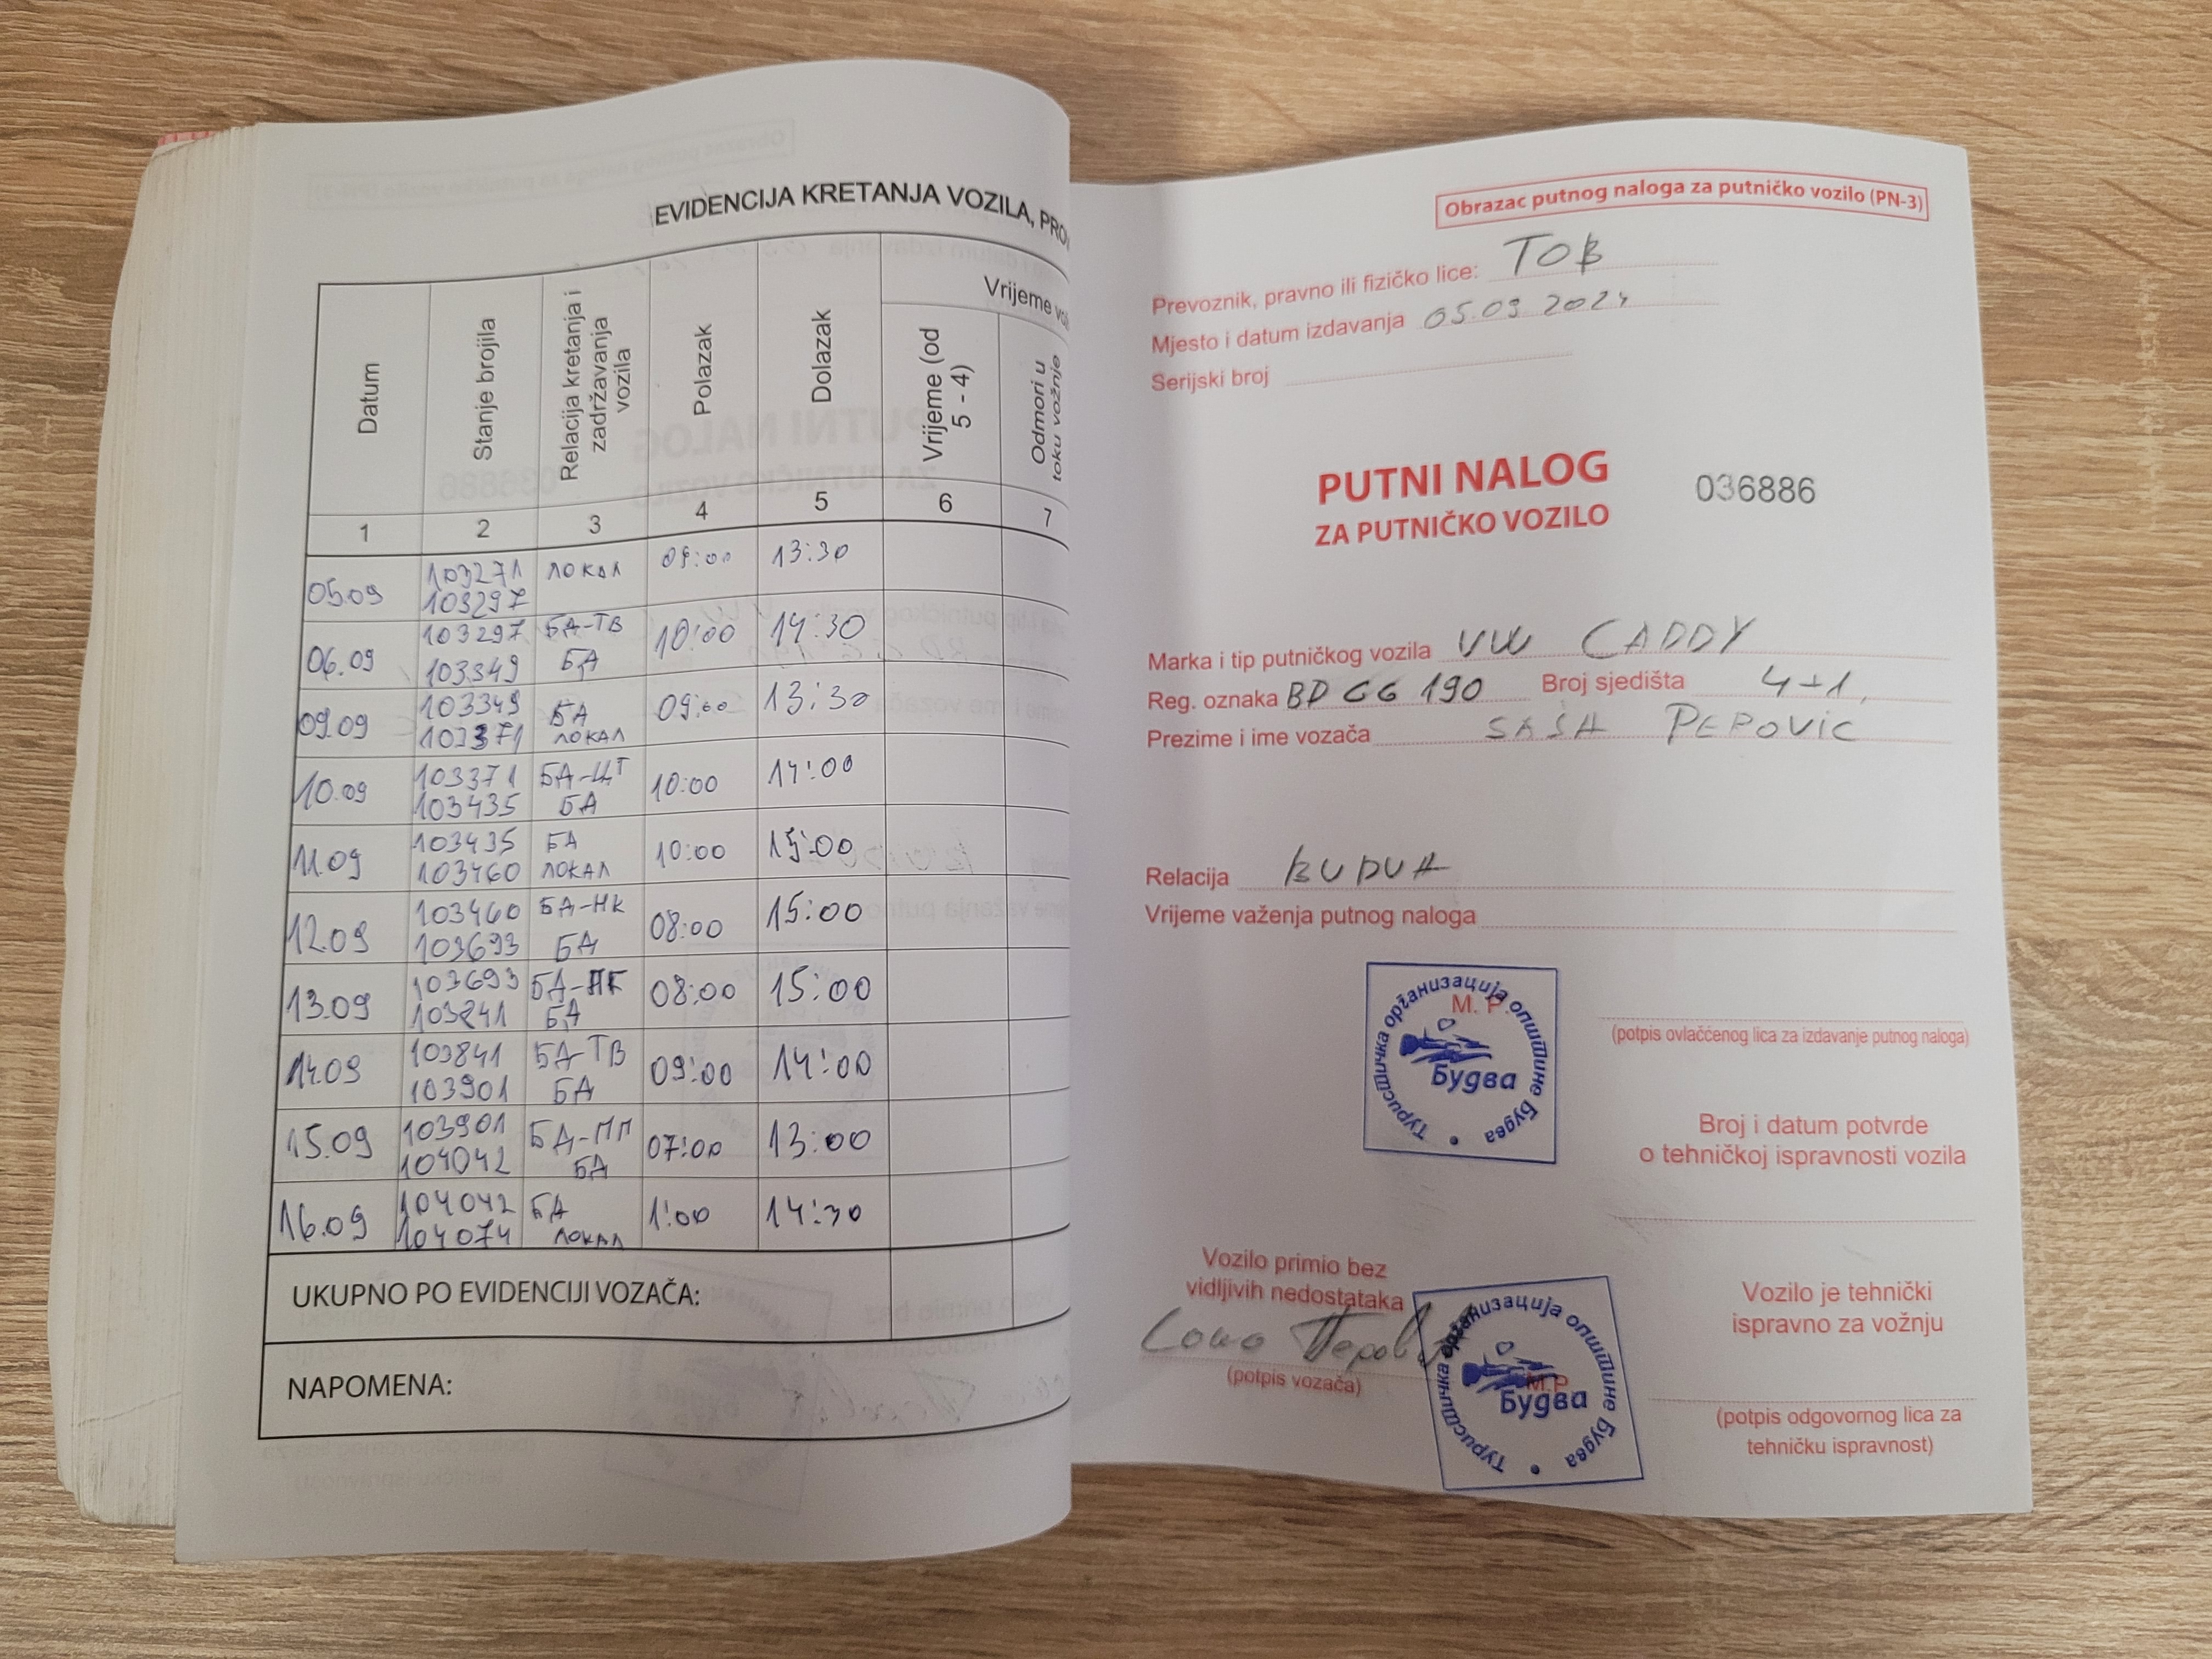 EVIDENCIJA KRETANJA VOZILA,
Datum
Stanje brojila
Relacija kretanja i zadržavanja vozila
Polazak
Dolazak
Vrijeme
Vrijeme (od 5 - 4)
Odmori u toku vožnje
1 2 3 4 5 6 7
05.09 103271 ЛОКАЛ 09:00 13:30
103297
06.09 103297 БА-ТВ 10:00 14:30
103349 БА
09.09 103349 БА 09:00 13:30
103371 ЛОКАЛ
10.09 103371 БА-ЦТ 10:00 14:00
103435 БА
11.09 103435 БА 10:00 15:00
103460 ЛОКАЛ
12.09 103460 БА-НК 08:00 15:00
103693 БА
13.09 103693 08:00 15:00
БА
14.09 103841 БА-ТВ 09:00 14:00
103901 БА
15.09 103901 БА-ПП 07:00 13:00
104042 БА
16.09 104042 БА 1:00 14:30
104074 ЛОКАЛ
UKUPNO PO EVIDENCIJI VOZAČA:
NAPOMENA:
Obrazac putnog naloga za putničko vozilo (PN-3)
Prevoznik, pravno ili fizičko lice: TOB
Mjesto i datum izdavanja 05.09.2024
Serijski broj
PUTNI NALOG 036886
ZA PUTNIČKO VOZILO
Marka i tip putničkog vozila VW CADDY
Reg. oznaka BD CG 190 Broj sjedišta 4+1
Prezime i ime vozača SAŠA PEROVIC
Relacija BUDVA
Vrijeme važenja putnog naloga
М. Р.
Туристичка организација општине Будва
Будва
(potpis ovlaććenog lica za izdavanje putnog naloga)
Broj i datum potvrde
o tehničkoj ispravnosti vozila
Vozilo primio bez
vidljivih nedostataka
(potpis vozača)
M.P.
Туристичка организација општине Будва
Будва
Vozilo je tehnički
ispravno za vožnju
(potpis odgovornog lica za
tehničku ispravnost)